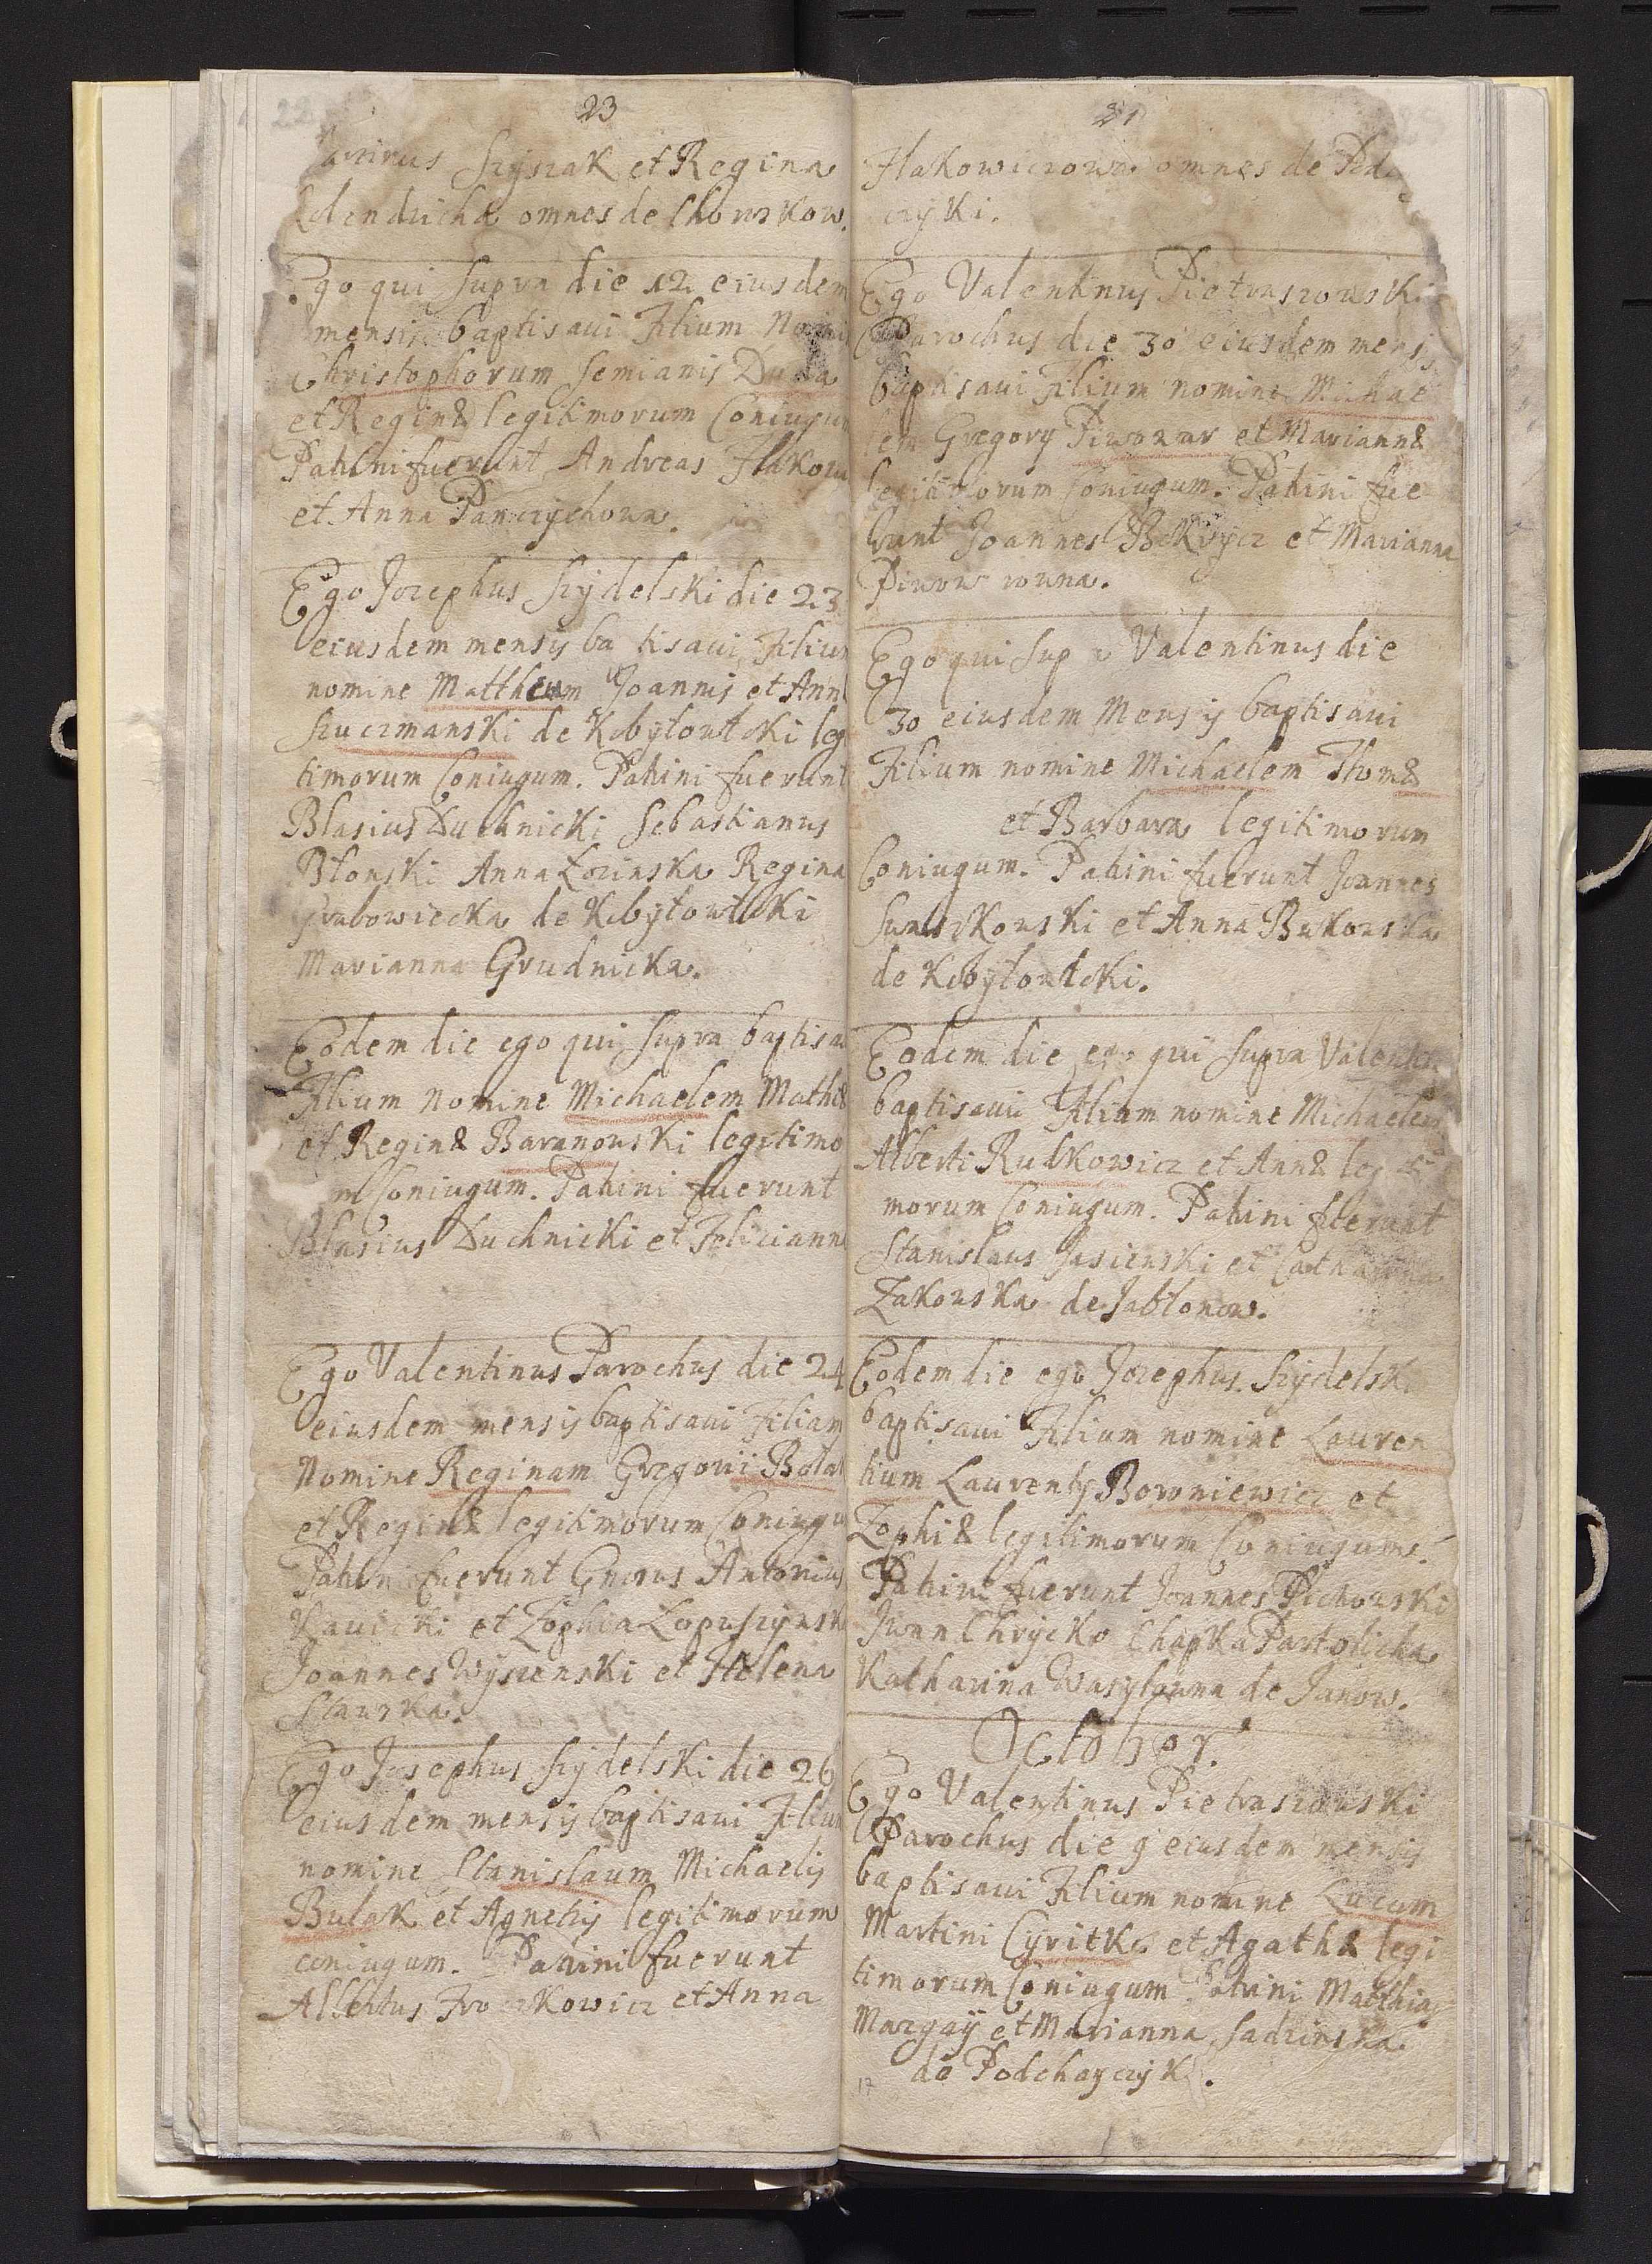 23
Szyszak et Regina
omnes de Chorszkow.
Ego qui supra die 12 eiusdem
mensis baptisaui Filium Nomi
Christophorum Semianis
et Reginæ legitimorum Coniugum
Patrini fuerunt Andreas Hakow
et Anna Panczychowa.
Ego Jozephus Szydelski die 23
eiusdem mensis ba tisaui Filium
nomine Mattheum Joannis et Ann
Szuczmanski de Kobyłowłoki leg
timorum Coniugum. Patrini fuerunt
Blasius Duchnicki Sebastianus
Błonski Anna Łozinska Regina
Grabowiecka de Kobyłowłoki
Marianna Grudnicka.
Eodem die ego qui supra baptisa
Filium Nomine Michaelem Mathiæ
et Reginæ Baranowski legitimo
m Coniugum. Patrini fuerunt
Blasius Duchnicki et Felicianna
Ego Valentinus Parochus die 24
eiusdem mensis baptisaui Filiam
Nomine Reginam Gregorii
et Reginæ legitimorum Coniugu
Patrini fuerunt Gnosus Antonius
et Zophia Łopuszynsk
Joannes Wyszenski et Helena
Ego Josephus Szydelski die 26
eiusdem mensis baptisaui Filium
nomine Stanislaum Michaelis
Bulak et Agnetis legitimorum
coniugum. Patrini fuerunt
Albertus et Anna
Hakowiczowa omnes de Pod
czyki.
Ego Valentinus Pietraszowski
Parochus die 30 eiusdem mensis
baptisaui Filium nomine Michae
lem Gregory Piwowar et Mariannæ
legitimorum Coniugum. Patrini fue
runt Joannes et Marianna
Ego qui sup a Valentinus die
30 eiusdem Mensis baptisaui
Filium nomine Michaelem Thomæ
et Barbara legitimorum
Coniugum. Patrini fuerunt Joannes
et Anna Bukowska
de Kobyłowłoki.
Eodem die ego qui supra
baptisaui Filium nomine Michaelem
Alberti Rudkowicz et Annæ leg
morum Coniugum. Patrini fuerunt
Stanislaus Jasienski et Catharina
Zakowska de Jabłonow.
Eodem die ego Jozephus Szydelsk
baptisaui Filium nomine Lauren
tium Laurentij Bowniewicz et
Zophiæ legitimorum Coniugums.
Patrini fuerunt Joannes Pichowski
Iwan Chrycko Chapka
Katharina Wasylowna de Janow.
October.
Ego Valentinus Pietraszowski
Parochus die 9 eiusdem mensis
baptisaui Filium nomine Lucam
Martini et Agathæ legi
timorum Coniugum Patrini Matthias
Mazgay et Marianna Sadzinska
de Podchayczyk .
17